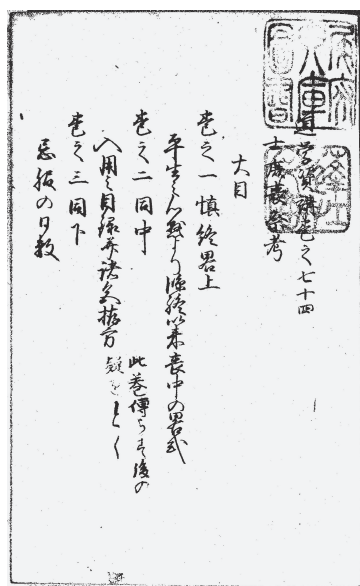 道学資講巻之七十四
士庶喪祭考
大目
巻之一 慎終畧上
平生の心得より臨終以来喪中の畧式
巻之二 同中
入用之目録并諸文格方
此巻傳らす後の
巻之三 同下
忌服の日数